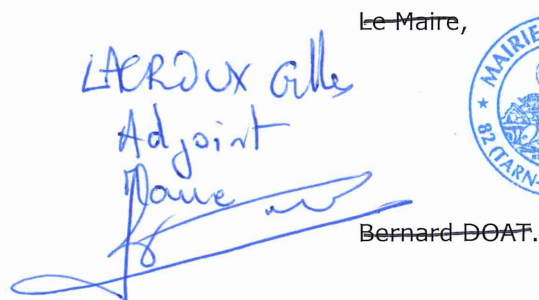 Le Maire,
LACROUX Gilles
Adjoint
Maire
MAIRIE
82 (TARN-
Bernard DOAT.